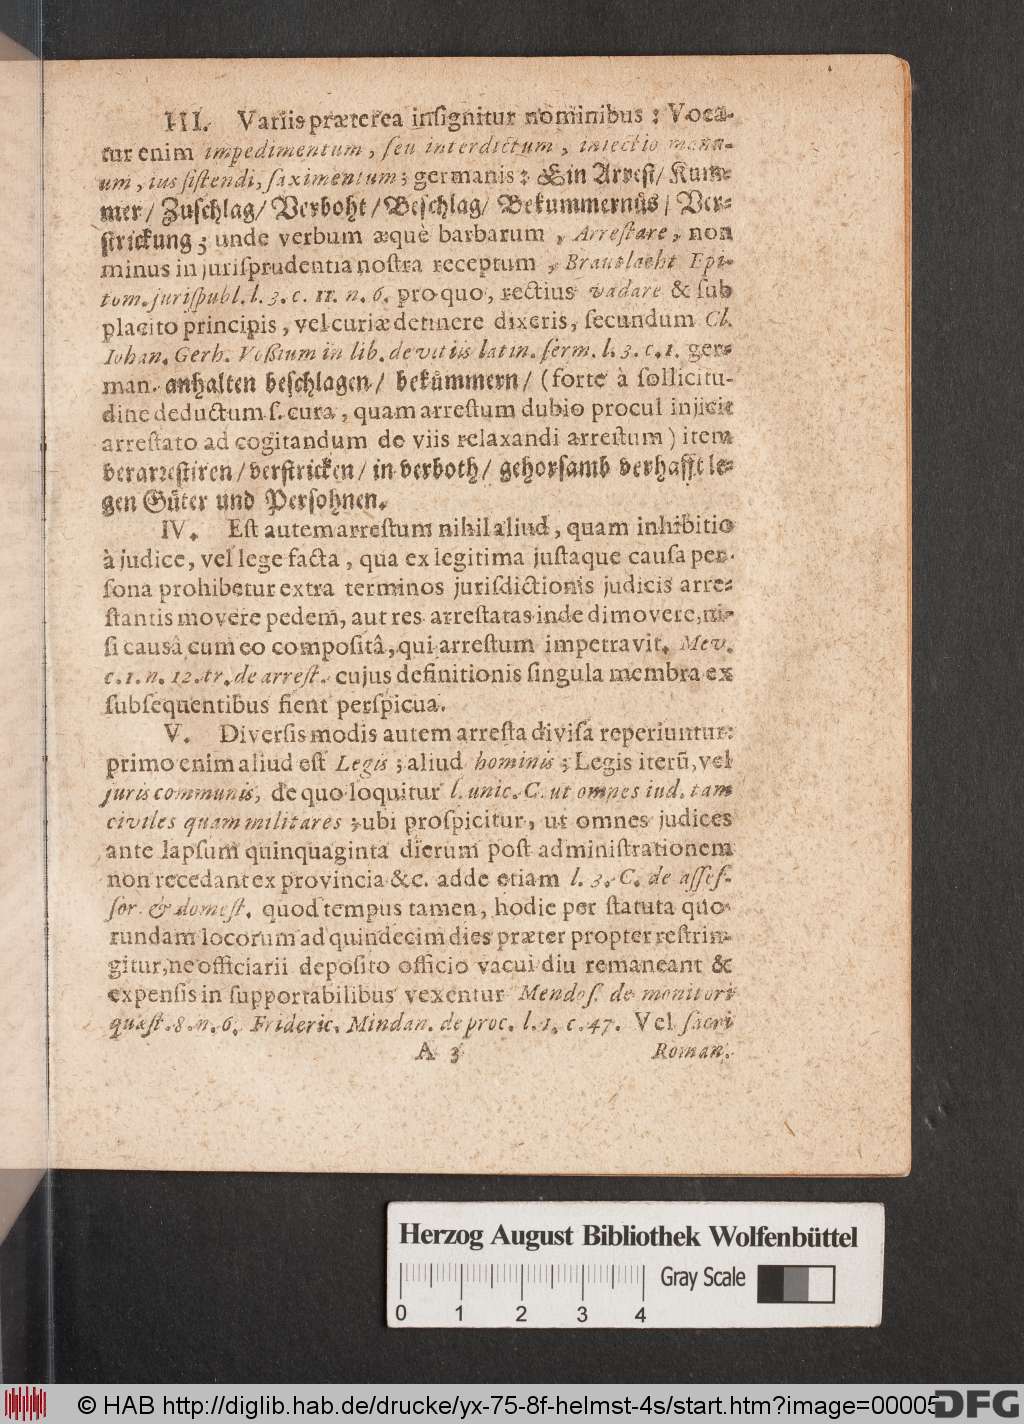 III. Variis præterea inſignitur nominibus : Voca-
tur enim impedimentum, ſeu interdictum, iniectio manu-
um, ius ſiſtendi, ſaximentum; germanis: Ein Arreſt/ Kum-
mer/ Zuſchlag/ Verboht/ Beſchlag/ Bekummernůs/ Ver-
ſtrickung; unde verbum æquè barbarum, Arreſtare, non
minus in jurisprudentia noſtra receptum, Brautlacht Epi-
tom. juriſpubl. l. 3. c. 11. n. 6. pro quo, rectius vadare & ſub
placito principis, vel curiæ detinere dixeris, ſecundum Cl.
Iohan. Gerh. Voßium in lib. de vitiis latin. ſerm. l. 3. c. 1. ger-
man. anhalten beſchlagen/ bekůmmern/ (forte à ſollicitu-
dine deductum ſ. cura, quam arreſtum dubio procul injicit
arreſtato ad cogitandum de viis relaxandi arreſtum) item
verarreſtiren/ verſtricken/ in verboth/ gehorſamb verhafft le-
gen Gůter und Perſohnen.
IV. Eſt autem arreſtum nihil aliud, quam inhibitio
à judice, vel lege facta, qua ex legitima juſtaque cauſa per-
ſona prohibetur extra terminos jurisdictionis judicis arre-
ſtantis movere pedem, aut res arreſtatas inde dimovere, ni-
ſi causâ cum eo compoſitâ, qui arreſtum impetravit. Mev.
c. 1. n. 12. tr. de arreſt. cujus definitionis ſingula membra ex
ſubſequentibus fient perſpicua.
V. Diverſis modis autem arreſta diviſa reperiuntur:
primo enim aliud eſt Legis; aliud hominis; Legis iterũ, vel
juris communis, de quo loquitur l. unic. C. ut omnes iud. tam
civiles quam militares; ubi proſpicitur, ut omnes judices
ante lapſum quinquaginta dierum poſt adminiſtrationem
non recedant ex provincia &c. adde etiam l. 3. C. de aſſeſ-
ſor. & domeſt. quod tempus tamen, hodie per ſtatuta quo-
rundam locorum ad quindecim dies præter propter reſtrin-
gitur, ne officiarii depoſito officio vacui diu remaneant &
expenſis in ſupportabilibus vexentur Mendoſ. de monitori
quæſt. 8. n. 6. Frideric. Mindan. de proc. l. 1. c. 47. Vel ſacri
A 3 Roman.
Herzog August Bibliothek Wolfenbüttel
Gray Scale
0 1 2 3 4
© HAB http://diglib.hab.de/drucke/yx-75-8f-helmst-4s/start.htm?image=00005
DFG